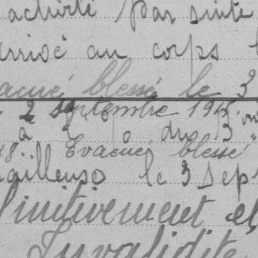 activité par suite
arrivé au corps l
Evacué blessé le 3
2 septembre 1915
à du 3
18 Evacué blessé
ailleuse le 3 Sept
finitivement et
Invalidité